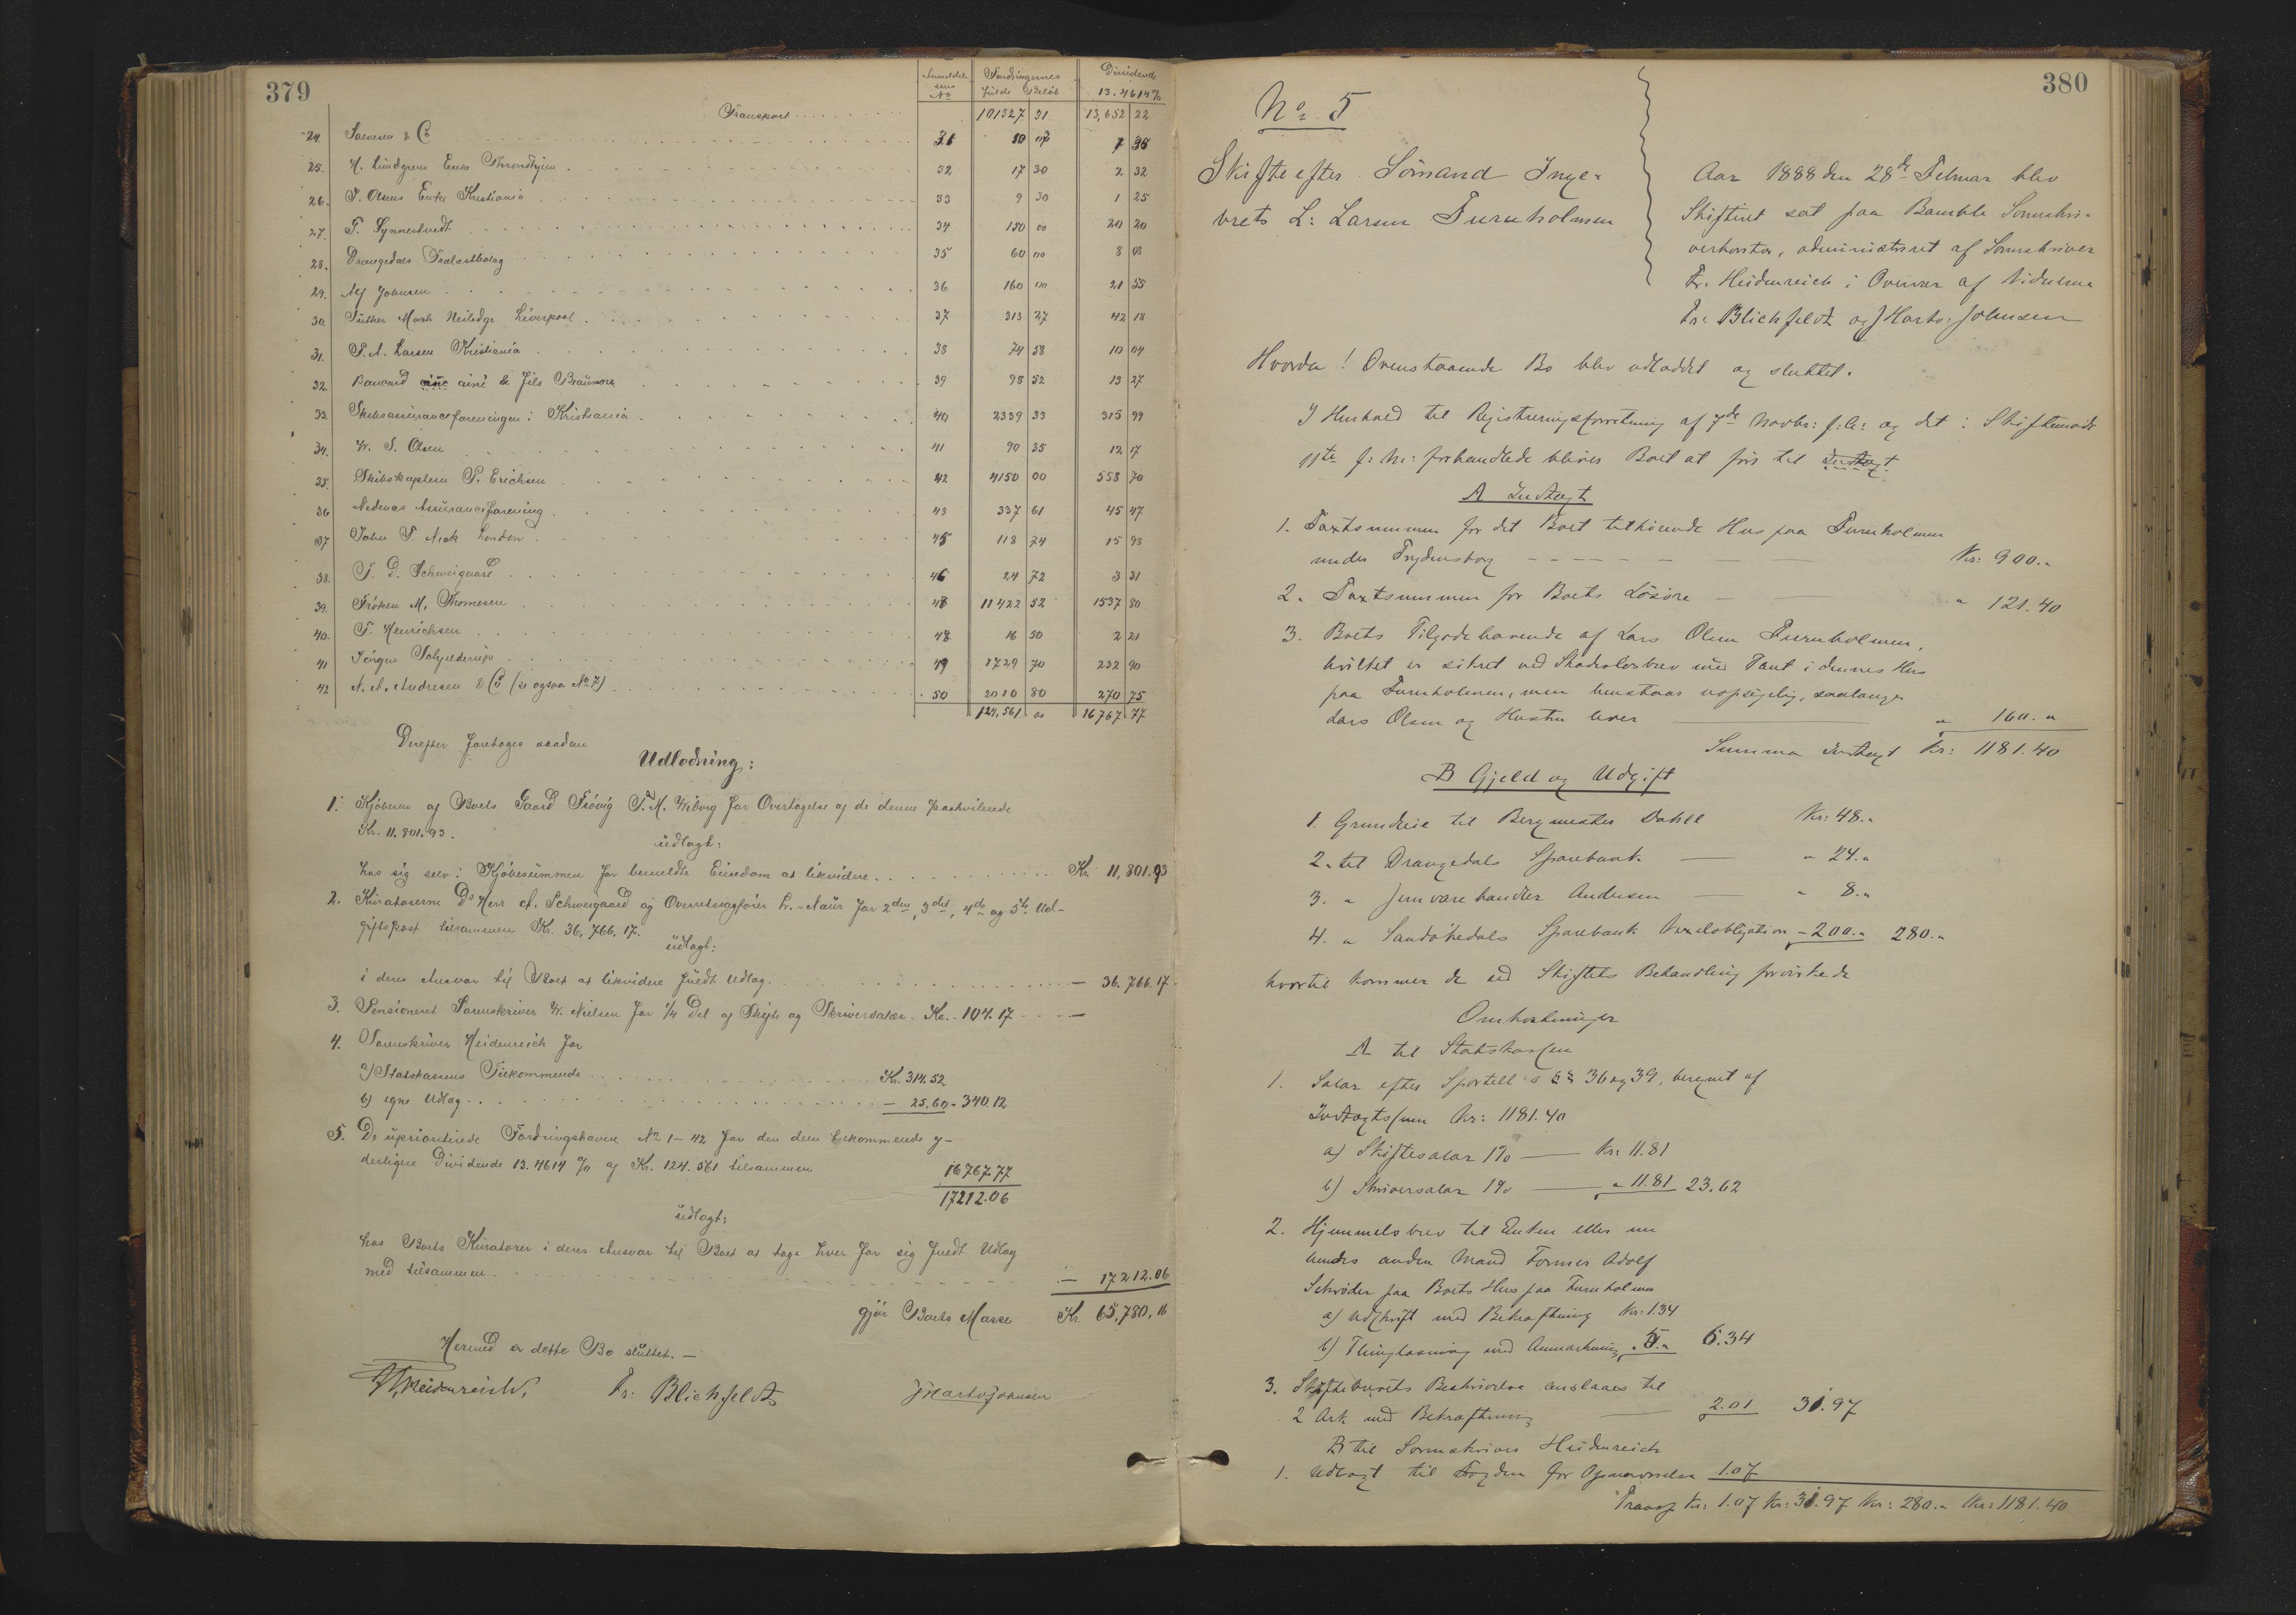 379
Anmeldel-
sens
No
Fordringernes
fulde Beløb
Dividende
13.4614%
Transport 101327 31 13,652 22
24. Salvesen & Co 31
25. H. Lundgrens Enke Throndhjem 32 17 30 2 32
26. P. Olsens Enke Kristiania 33 9 30 1 25
27. T. Synnestvedt 34 150 00 20 20
28. Drangedals Trælastbolag 35 60 00 8 08
29. Alf Johnsen 36 160 00 21 55
30. Liverpool 37 313 27 42 18
31. P. A. Larsen Kristiania 38 74 58 10 04
32. ainé & fils 39 98 52 13 27
33. Skibsassuranceforeningen i Kristiania 40 2339 33 315 99
34. W. S. Olsen 41 90 35 12 17
35. Skibskaptein P. Erichsen 42 4150 00 558 70
36 Nedenæs Assuranceforening 43 337 61 45 47
37 John T. London 45 118 74 15 98
38. T. D. Schweigaard 46 24 72 3 31
39. Frøken M. Thomesen 11422 52 1537 80
40. T. Henrichsen 48 16 50 2 21
41 Jørgen Schjelderup 49 1729 70 232 90
42 N. A. Andresen & Co (se ogsaa No 7) 50 2010 80 270 75
124,561 00 16767 77
Derefter foretoges saadan
Udlodning:
1. Kjøberen af Boets Gaard M. Wiborg for Overtagelse af de denne paahvilende
Kr. 11.801.93.
udlagt:
hos sig selv i Kjøbesummen for bemeldte Eiendom at likvidere Kr. 11,801.93
2. Kuratorerne Hrr A. Schweigaard og Overretssagfører for 2den, 3die, 4de og 5te Ud-
giftspost tilsammen Kr. 36,766.17.
udlagt:
i deres Ansvar til Boet at likvidere fuldt Udlæg — 36.766.17
3. Pensioneret Sorenskriver W. Nielsen for 1/4 Del af Skifte og Skriversalær Kr. 104.17 —
4. Sorenskriver Heidenreich for
a) Statskassens Tilkommende Kr. 314.52
b) egne Udlæg — 25.60 - 340.12
5. De uprioriterede Fordringshavere No 1-42 for den dem tilkommende y-
derligere Dividende 13.4614 % af Kr. 124.561 tilsammen
16767.77
17212.06
udlagt:
hos Boets Kuratorer i deres Ansvar til Boet at tage hver for sig fuldt Udlæg
med tilsammen — 17212.06
gjør Boets Masse Kr. 65,780,16
Hermed er dette Bo sluttet. —
Heidenreich. Fr: Blichfeldt J Hartv Johnsen
380
No 5
Skifte efter Sømand Inge-
bret L: Larsen Furuholmen
Aar 1888 den 28de Februar blev
Skifteret sat paa Bamble Sorenskri-
verkontor, administreret af Sorenskriver
Fr. Heidenreich i Overvær af Vidnerne
Fr: Blichfeldt og J Hartv: Johnsen
Hvorda! Ovenstaaende Bo blev udloddet og sluttet.
I Henhold til Registreringsforretning af 7de Novbr: f: A: og det i Skiftemøde
11te f: M: forhandlede bliver Boet at føre til Indtægt
A Indtægt
1. Taxtsummen for det Boet tilhørende Hus paa Furuholmen
under Frydensborg Kr: 900.-
2. Taxtsummen for Boets Løsøre " 121.40
3. Boets Tilgodehavende af Lars Olsen Furuholmen,
hvilket er sikret ved Skadesløsbrev med Pant i dennes Hus
paa Furuholmen, men henstaar uopsigelig, saalænge
Lars Olsen og Hustru lever " 160."
Summa Indtægt Kr: 1181.40
B Gjeld og Udgift
1. Grundleie til Bergmester Dahll Kr: 48.-
2. til Drangedals Sparebank " 24.-
3. " Jernvarehandler Andersen " 8.-
4. " Sandøkedals Sparebank Vexelobligation - 200.- 280.-
hvortil kommer de ved Skiftets Behandling forvirkede
Omkostninger
A til Statskassen
1. Salær efter Sportell s §§ 36 og 39, beregnet af
Indtægtssum Kr: 1181.40
a) Skiftesalær 1% Kr: 11.81
b) Skriversalær 1% " 11.81 23.62
2. Hjemmelsbrev til Enken eller nu
hendes anden Mand Former Adolf
Schrøder paa Boets Hus paa Furuholmen
a) Udskrift med Bekræftning Kr: 1.34
b) Thinglæsning med Anmærkning " 5.- 6.34
3. Skiftebrevets Beskrivelse anslaaes til
2 Ark med Bekræftning 2.01 31.97
B til Sorenskriver Heidenreich
1. Udlagt til Fogden for 1.07
Transp Kr: 1.07 Kr: 31.97 Kr: 280.- Kr: 1181.40